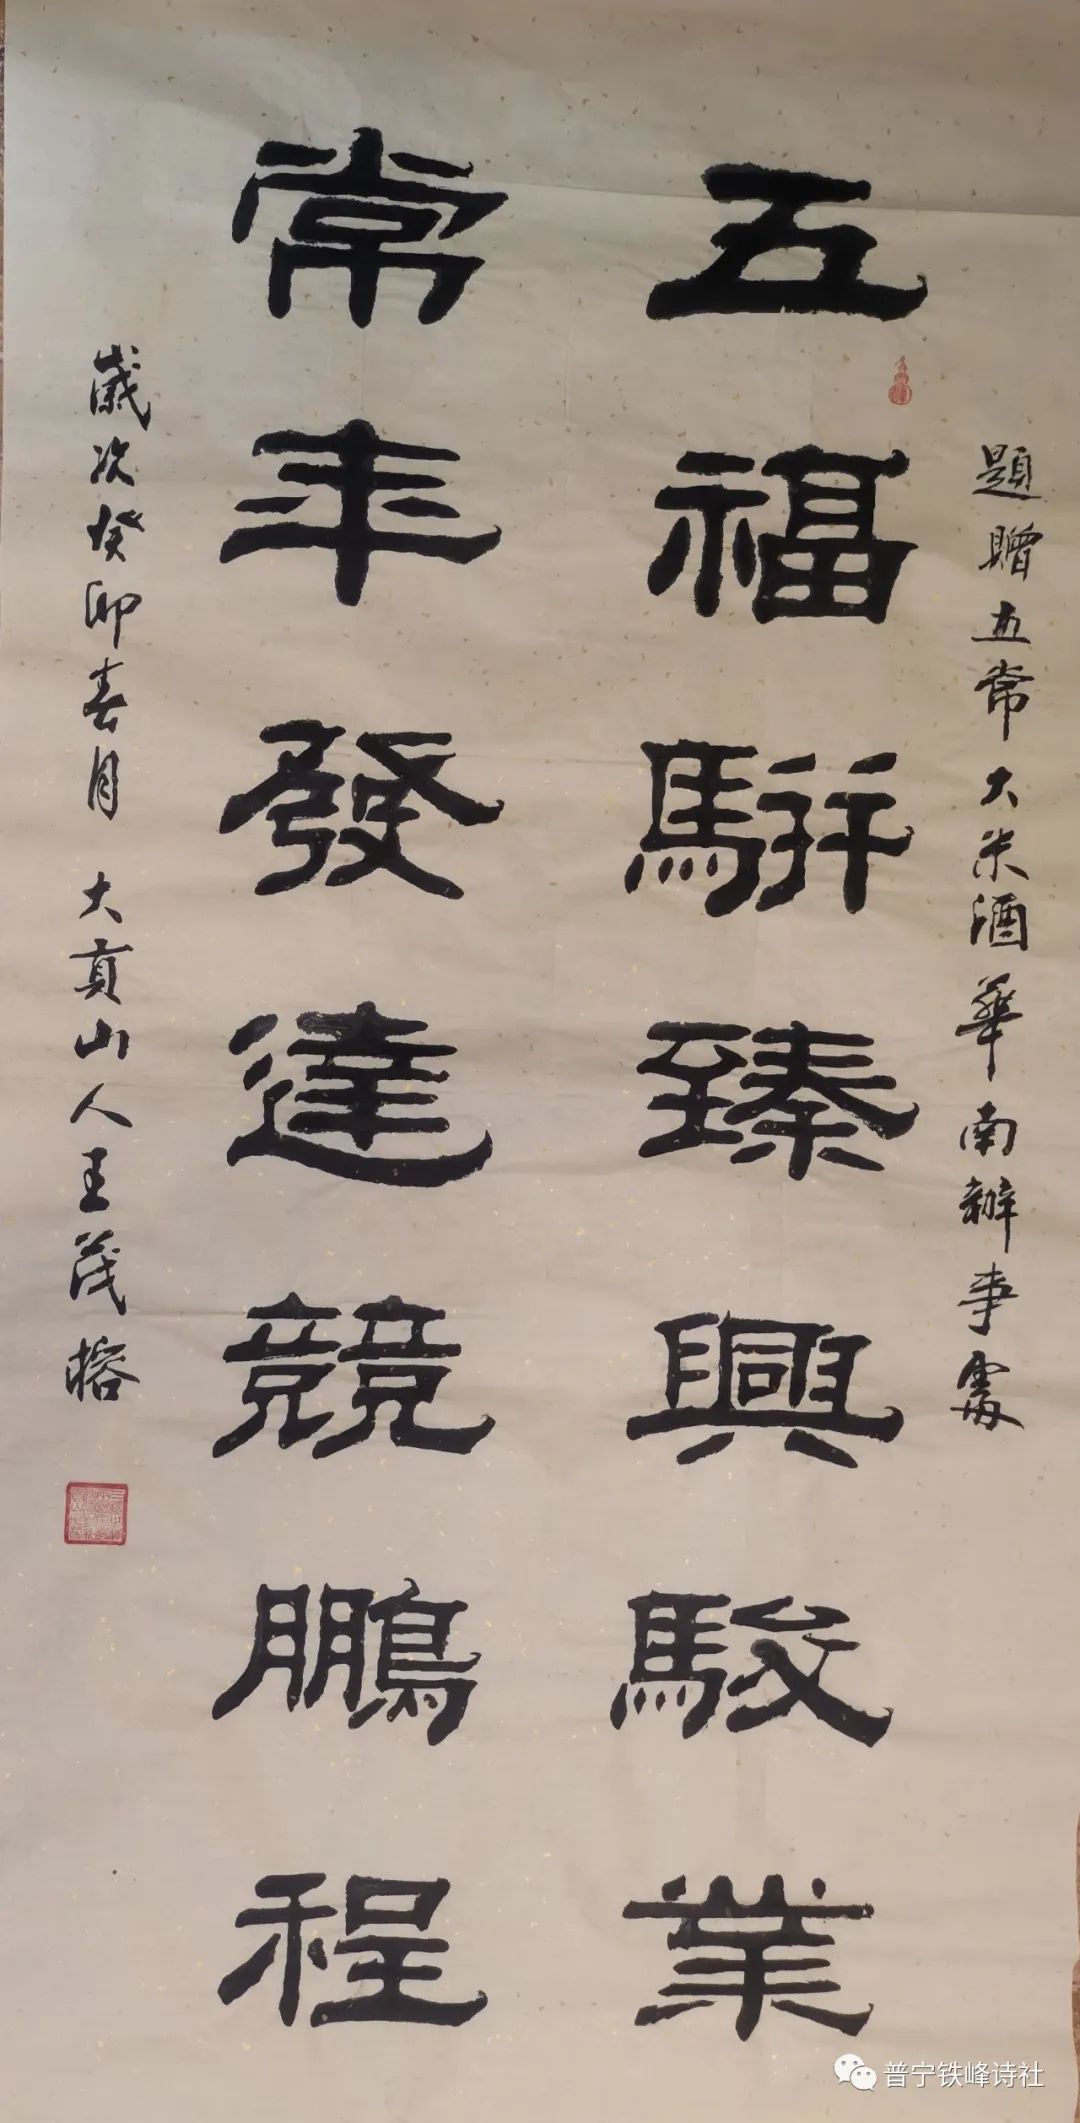 題贈五常大米酒華南辦事處
五福駢臻興駿業
常年發達競鵬程
歲次癸卯春月 大貢山人王茂榕
普宁铁峰诗社